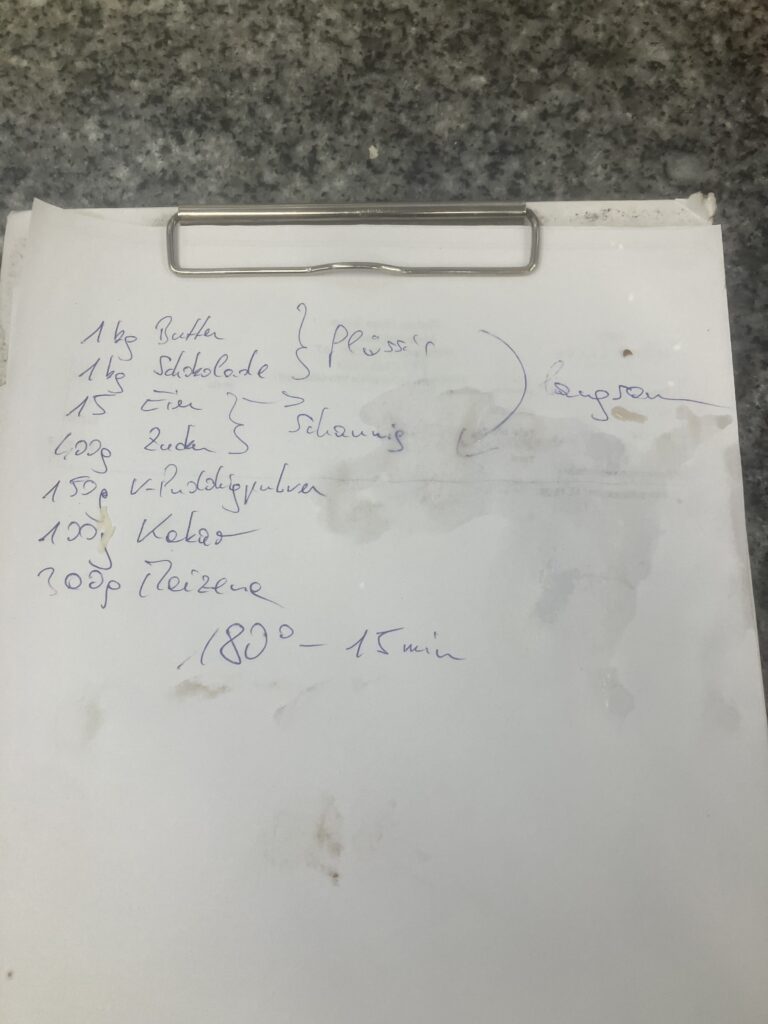 1 kg Butter } flüssig
1 kg Schokolade
15 Eier } -> schaumig
400g Zucker
langsam
150g V-Puddingpulver
100g Kakao
300g Maizena
180° - 15 min